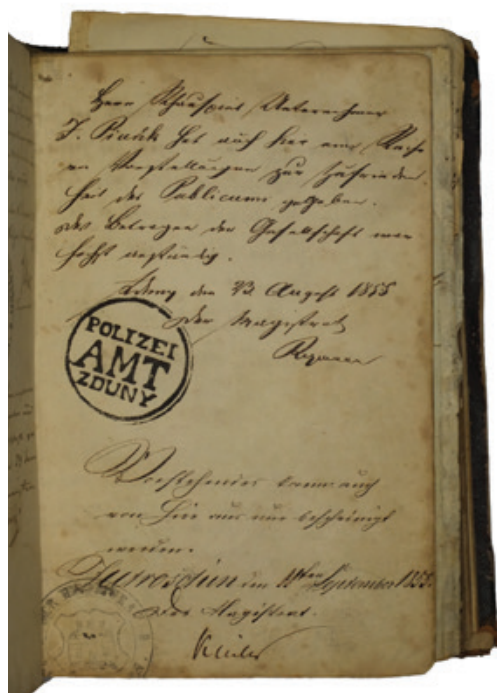 Herr Schauspiel Unternehmer
J. hat auch hier eine Reihe
von Vorstellungen zur Zufrieden
heit des Publicums gegeben.
Das Betragen der Gesellschaft war
höchst anständig.
Zduny den August 1855
Der Magistrat
POLIZEI
AMT
ZDUNY
Vorstehendes kann auch
von hier aus nur bescheinigt
werden.
Jutroschin den September 1855.
Der Magistrat.